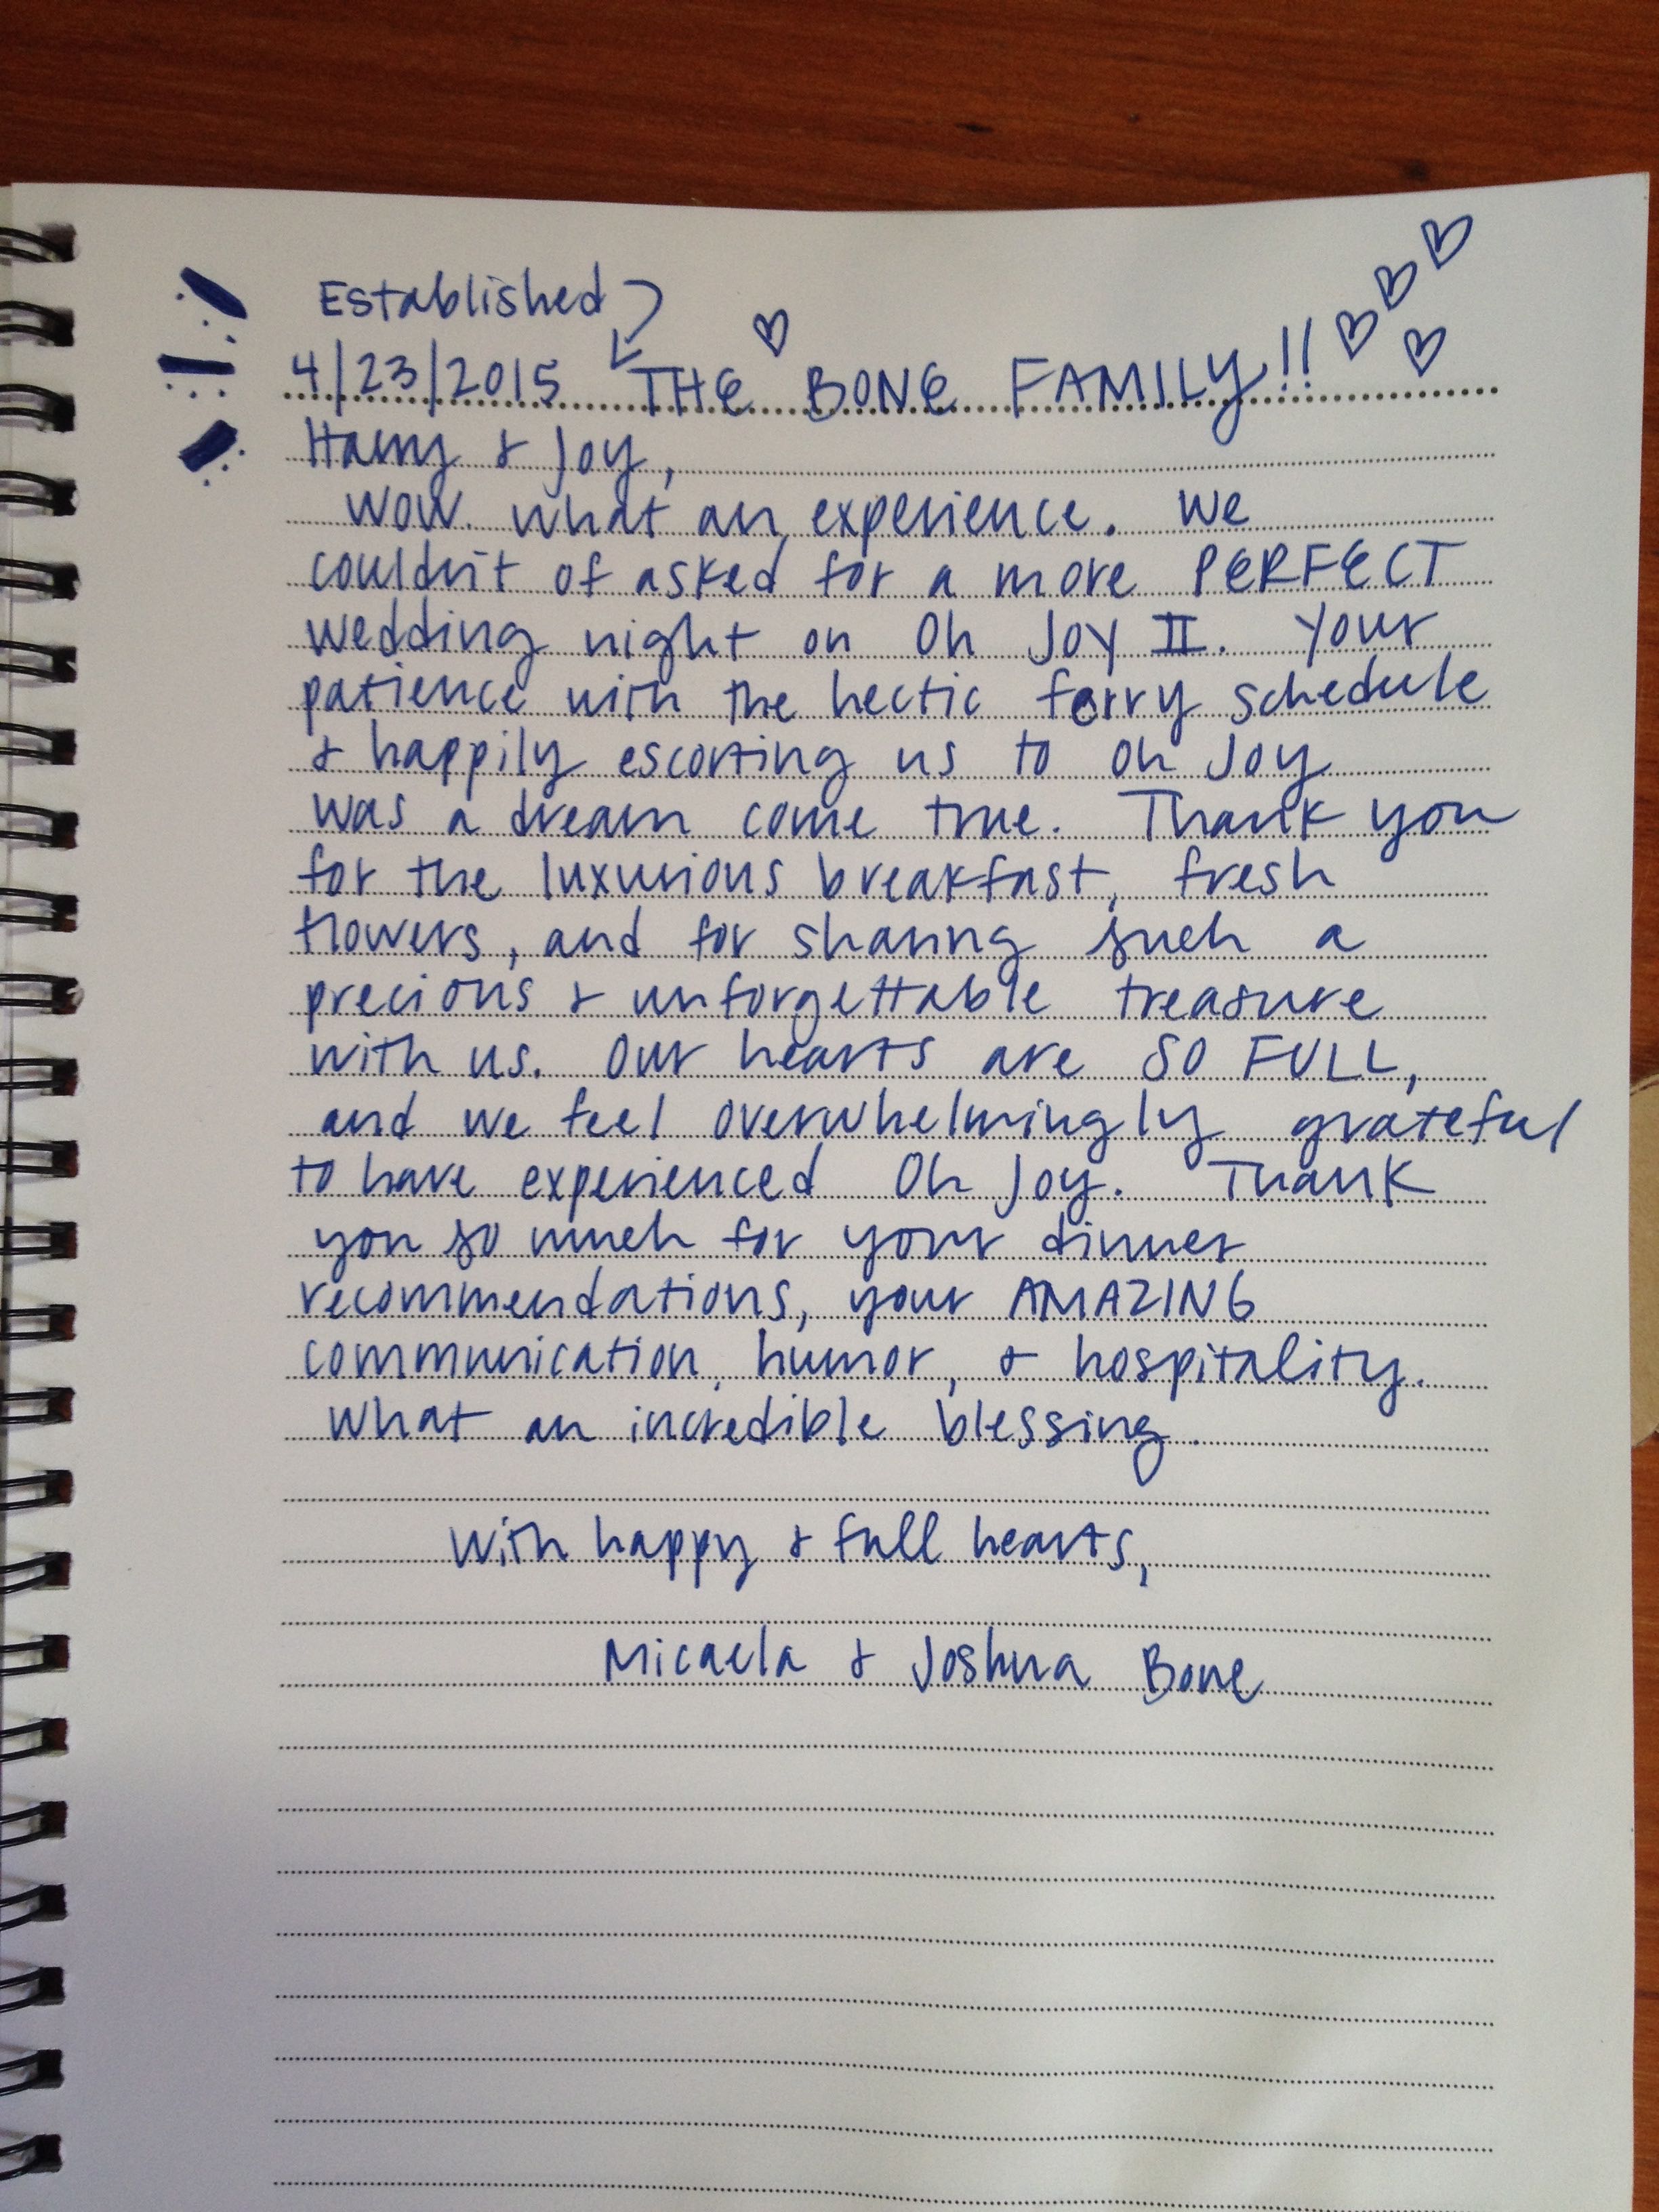 Established
4/23/2015 THE BONE FAMILY!!
Harry & Joy,
Wow. What an experience. We
couldn't of asked for a more PERFECT
wedding night on Oh Joy II. Your
patience with the hectic ferry schedule
& happily escorting us to Oh Joy
was a dream come true. Thank you
for the luxurious breakfast, fresh
flowers, and for sharing such a
precious & unforgettable treasure
with us. Our hearts are SO FULL,
and we feel overwhelmingly grateful
to have experienced Oh Joy. Thank
you so much for your dinner
recommendations, your AMAZING
communication, humor, & hospitality.
What an incredible blessing.
With happy & full hearts,
Micaela & Joshua Bone